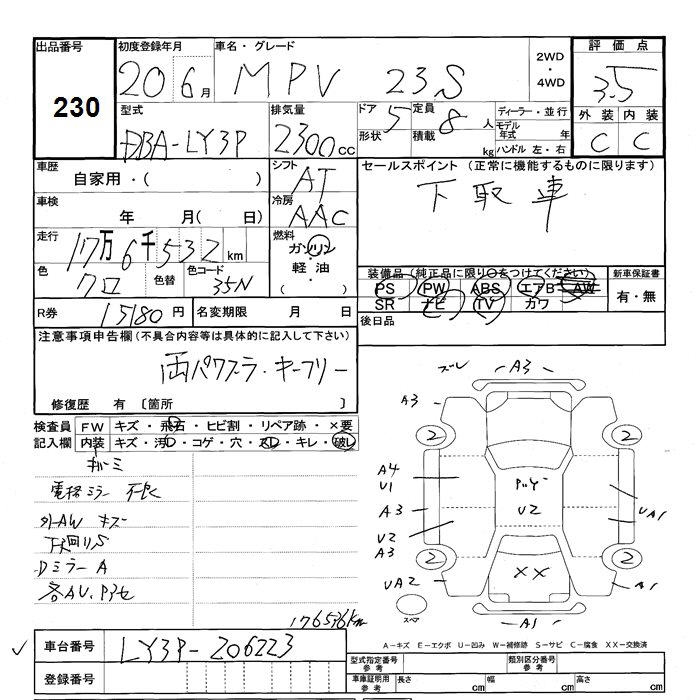 出品番号 初度登録年月 車名・グレード 2WD・4WD 評価点
230 20 6月 MPV 23S 3.5
型式 排気量 ドア 5 定員 8人 ディーラー・並行 外装 内装
DBA-LY3P 2300cc 形状 積載 kg モデル年式 年 C C
ハンドル 左・右
車歴 シフト セールスポイント (正常に機能するものに限ります)
自家用・( ) AT 下取車
車検 冷房
年 月( 日) AAC
走行 燃料
17万6千532km ガソリン
軽油
・( )
色 色替 色コード 装備品(純正品に限り○をつけてください) 新車保証書
クロ 35N PS PW ABS エアB AW 有・無
R券 15180円 名変期限 月 日 SR ナビ TV カワ
後日品
注意事項申告欄(不具合内容等は具体的に記入して下さい)
両パワスラ・キーフリー
修復歴 有 〔箇所 〕
検査員 FW キズ・飛石・ヒビ割・リペア跡・×要
記入欄 内装 キズ・汚れ・コゲ・穴・スレ・キレ・破れ
電格ミラー 不良
外AW キズ
下回りS
Dミラー A
176536km
ズレ A3
A3
2 2
A4
U1
A3 V2 UA1
U2
A3
2 2
XX
UA2 A1
スペア A1
A−キズ E−エクボ U−凹み W−補修跡 S−サビ C−腐食 XX−交換済
車台番号 LY3P-206223
登録番号
型式指定番号 参考 類別区分番号 参考
車庫証明用 参考 長さ cm 幅 cm 高さ cm